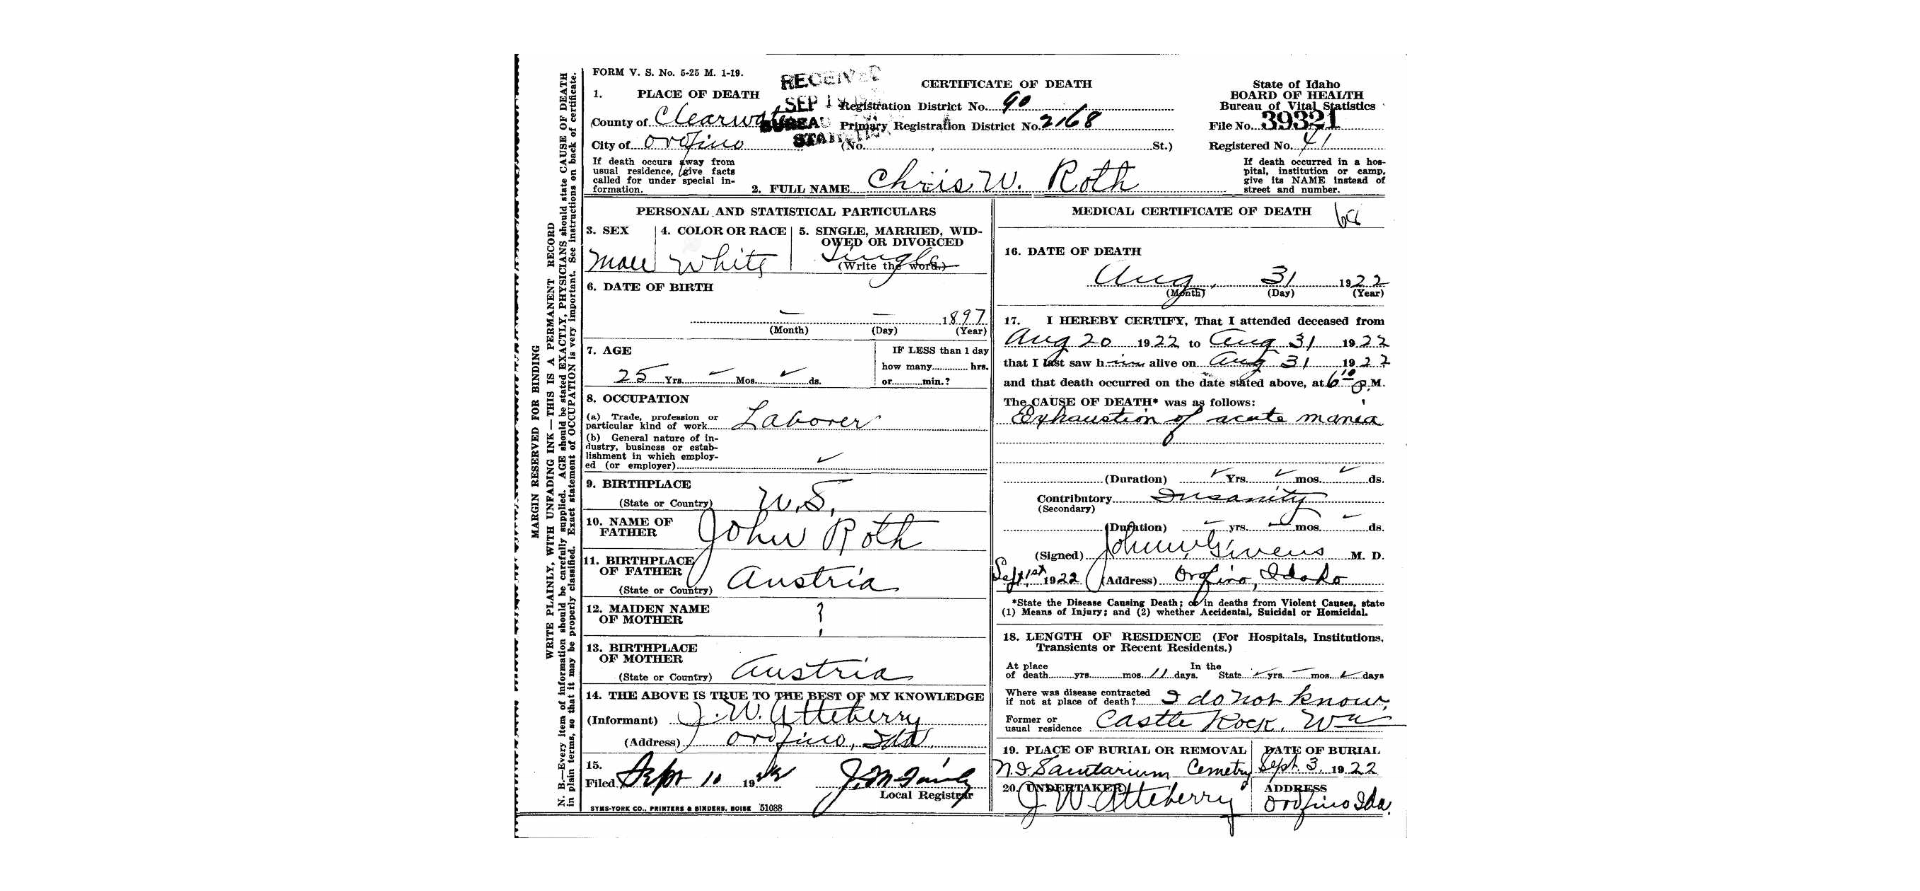 FORM V. S. No. 5-25 M. 1-19.
RECEIVED
SEP 1
BUREAU
STATI
CERTIFICATE OF DEATH
State of Idaho
BOARD OF HEALTH
Bureau of Vital Statistics
File No. 39321
Registered No. 41
1. PLACE OF DEATH
County of Clearwater
City of Orofino
Registration District No. 90
Primary Registration District No. 2168
(No. , St.)
If death occurs away from
usual residence, give facts
called for under special in-
formation.
2. FULL NAME Chris W. Roth
If death occurred in a hos-
pital, institution or camp,
give its NAME instead of
street and number.
PERSONAL AND STATISTICAL PARTICULARS
3. SEX
Male
4. COLOR OR RACE
White
5. SINGLE, MARRIED, WID-
OWED OR DIVORCED
Single
(Write the word.)
6. DATE OF BIRTH
— — 1897
(Month) (Day) (Year)
7. AGE
25 Yrs. – Mos. ds.
IF LESS than 1 day
how many hrs.
or min.?
8. OCCUPATION
(a) Trade, profession or
particular kind of work Laborer
(b) General nature of in-
dustry, business or estab-
lishment in which employ-
ed (or employer)
9. BIRTHPLACE
(State or Country) U.S.
10. NAME OF
FATHER John Roth
11. BIRTHPLACE
OF FATHER
(State or Country) Austria
12. MAIDEN NAME
OF MOTHER ?
13. BIRTHPLACE
OF MOTHER
(State or Country) Austria
14. THE ABOVE IS TRUE TO THE BEST OF MY KNOWLEDGE
(Informant) J. W. Atteberry
(Address) Orofino, Ida.
15.
Filed Sept 10 1922
Local Registrar
SYMS-YORK CO., PRINTERS & BINDERS, BOISE 51088
MEDICAL CERTIFICATE OF DEATH
16. DATE OF DEATH
Aug, 31 1922
(Month) (Day) (Year)
17. I HEREBY CERTIFY, That I attended deceased from
Aug 20 1922 to Aug 31 1922
that I last saw him alive on Aug 31 1922
and that death occurred on the date stated above, at 6 10 P.M.
The CAUSE OF DEATH* was as follows:
Exhaustion of acute mania
(Duration) Yrs. mos. ds.
Contributory Insanity
(Secondary)
(Duration) yrs. mos. ds.
(Signed) John W. Givens M. D.
Sept 1st 1922 (Address) Orofino, Idaho
*State the Disease Causing Death; or in deaths from Violent Causes, state
(1) Means of Injury; and (2) whether Accidental, Suicidal or Homicidal.
18. LENGTH OF RESIDENCE (For Hospitals, Institutions,
Transients or Recent Residents.)
At place
of death yrs. mos. 11 days.
In the
State yrs. mos. days
Where was disease contracted
if not at place of death? I do not know.
Former or
usual residence Castle Rock, Wn
19. PLACE OF BURIAL OR REMOVAL
N. I. Sanitarium Cemetry
DATE OF BURIAL
Sept. 3 1922
20. UNDERTAKER
J. W. Atteberry
ADDRESS
Orofino Ida.
MARGIN RESERVED FOR BINDING
WRITE PLAINLY, WITH UNFADING INK—THIS IS A PERMANENT RECORD
N. B.—Every item of information should be carefully supplied. AGE should be stated EXACTLY, PHYSICIANS should state CAUSE OF DEATH
in plain terms, so that it may be properly classified. Exact statement of OCCUPATION is very important. See instructions on back of certificate.